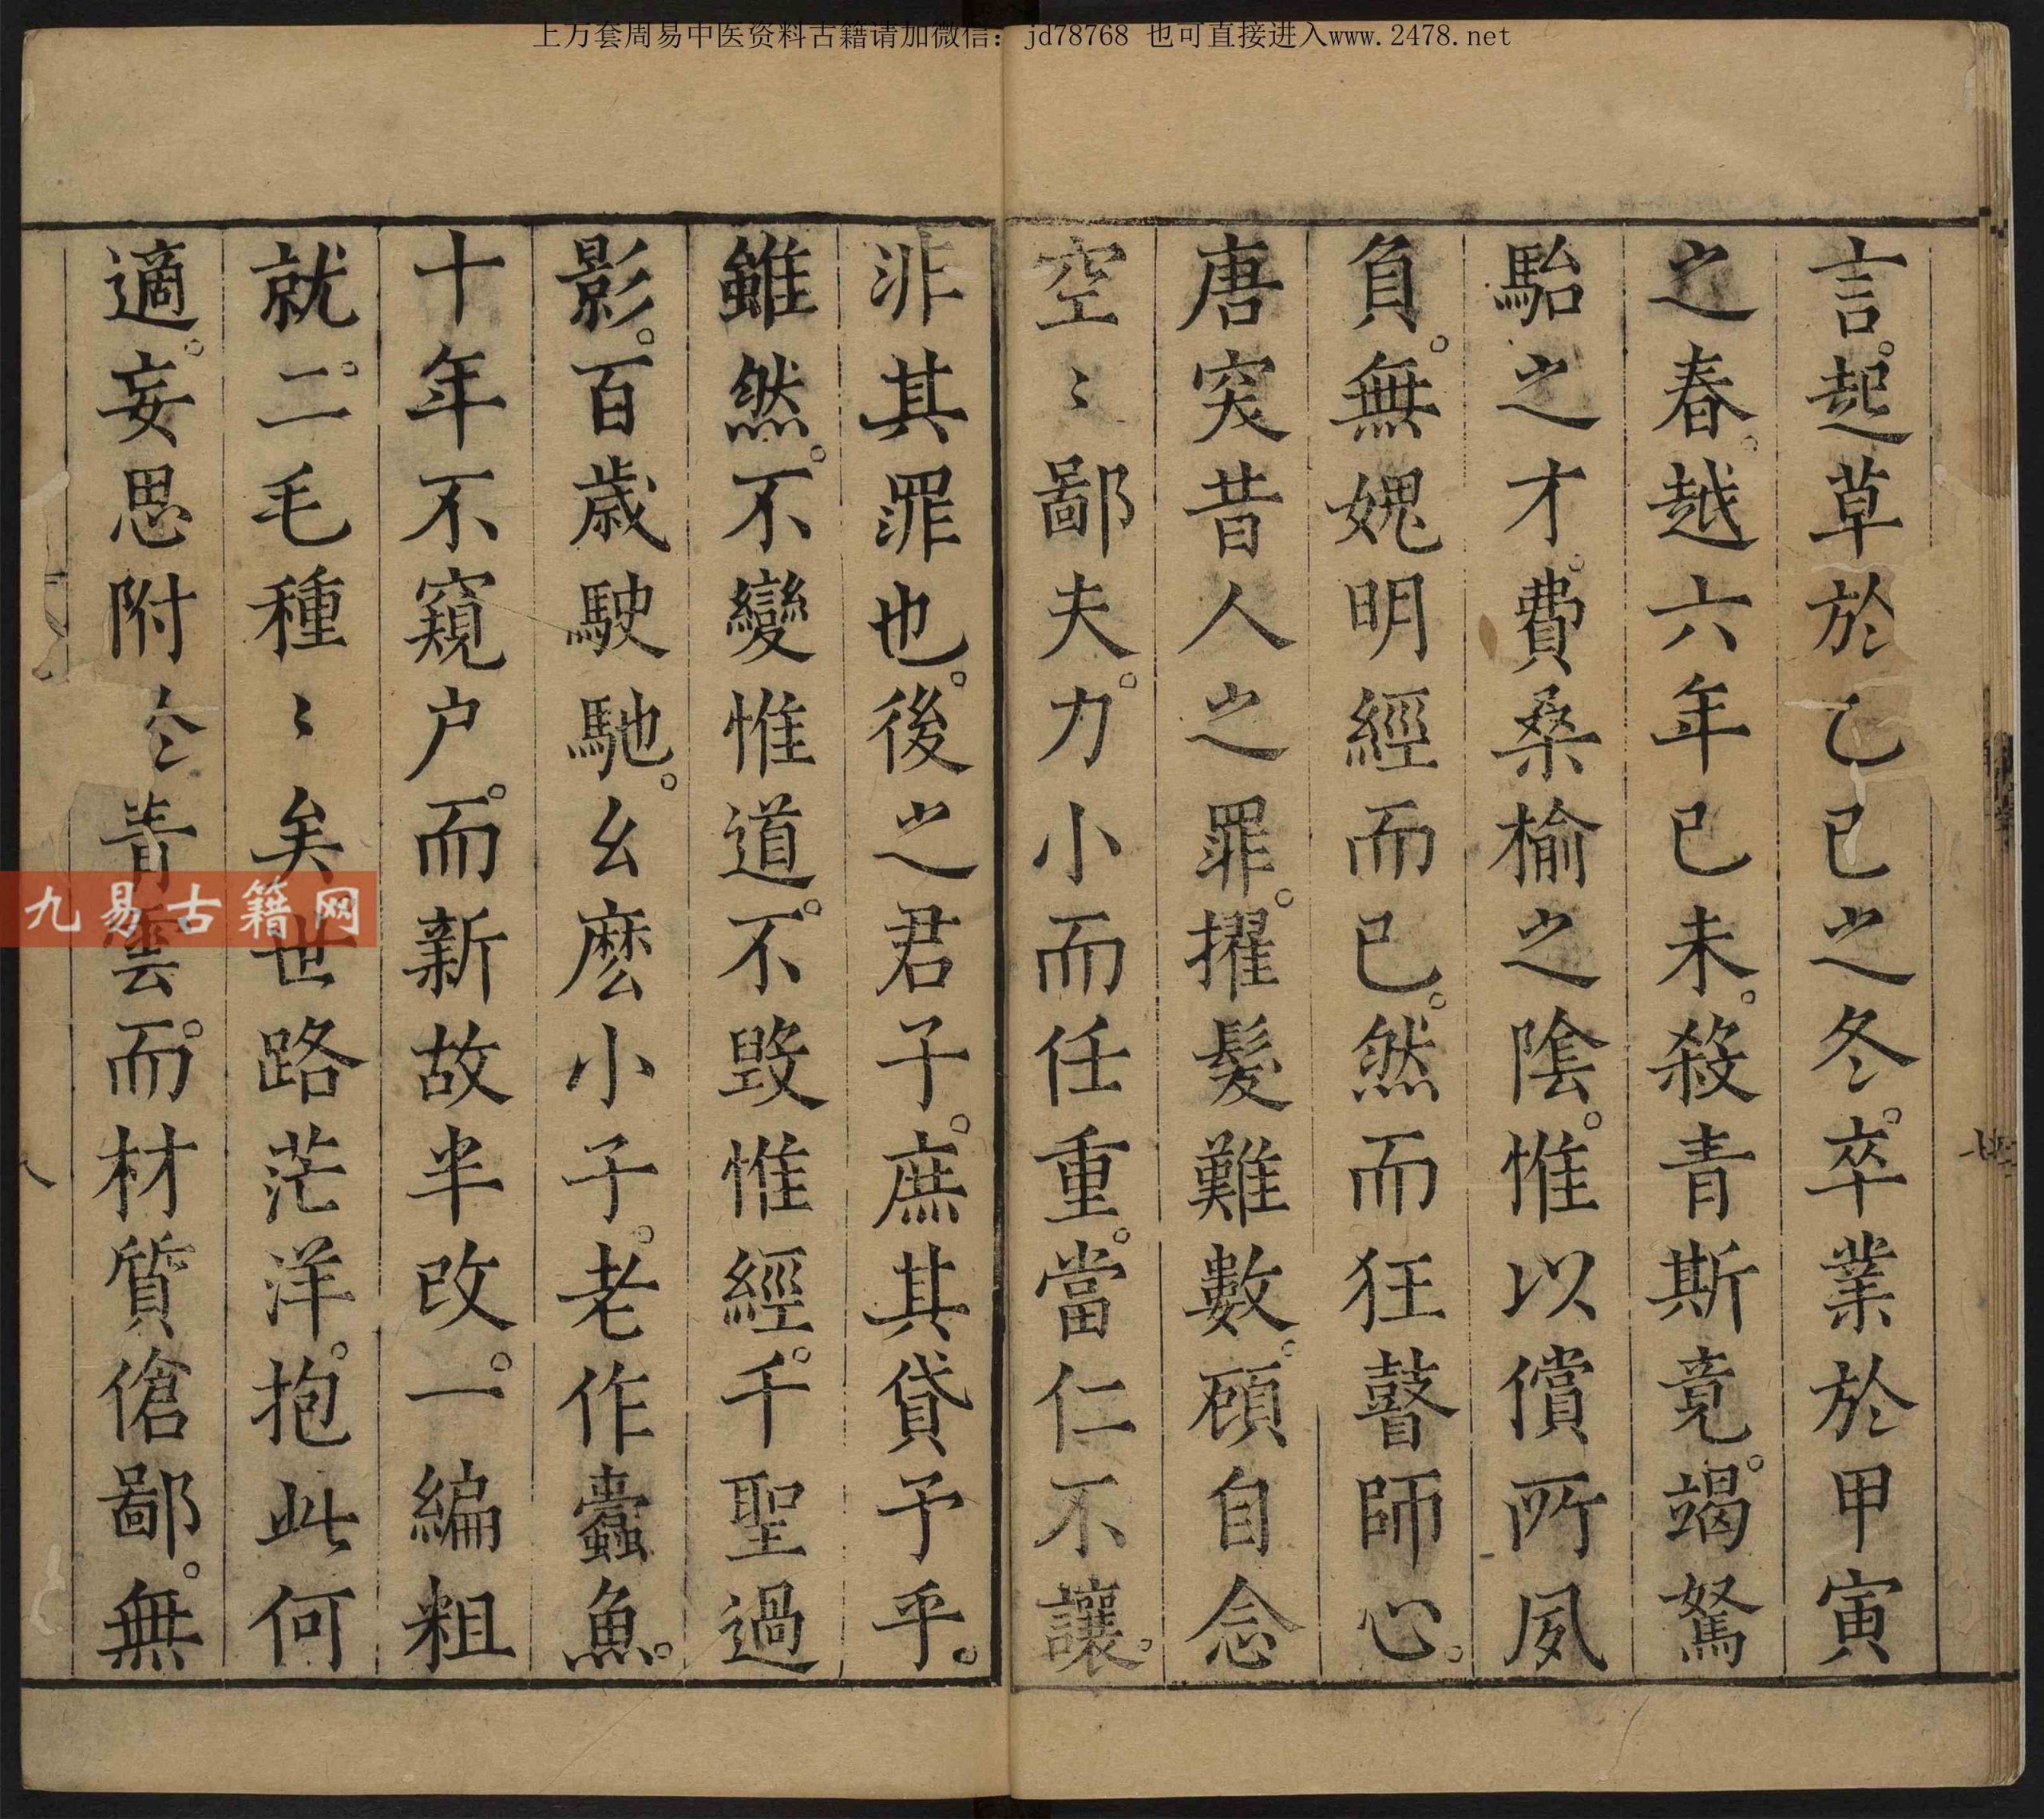 上万套周易中医资料古籍请加微信：jd78768 也可直接进入www.2478.net
言。起草於乙巳之冬。卒業於甲寅
之春。越六年己未。殺青斯竟。竭駑
駘之才。費桑榆之陰。惟以償所夙
負。無媿明經而已。然而狂瞽師心。
唐突昔人之罪。擢髮難數。顧自念
空〻鄙夫。力小而任重。當仁不讓。
非其罪也。後之君子。庶其貸予乎。
雖然。不變惟道。不毀惟經。千聖過
影。百歳駛馳。幺麽小子。老作蠹魚。
十年不窺户。而新故半改。一編粗
就。二毛種〻矣世路茫洋。抱此何
適。妄思附仚青雲。而材質傖鄙。無
九易古籍网